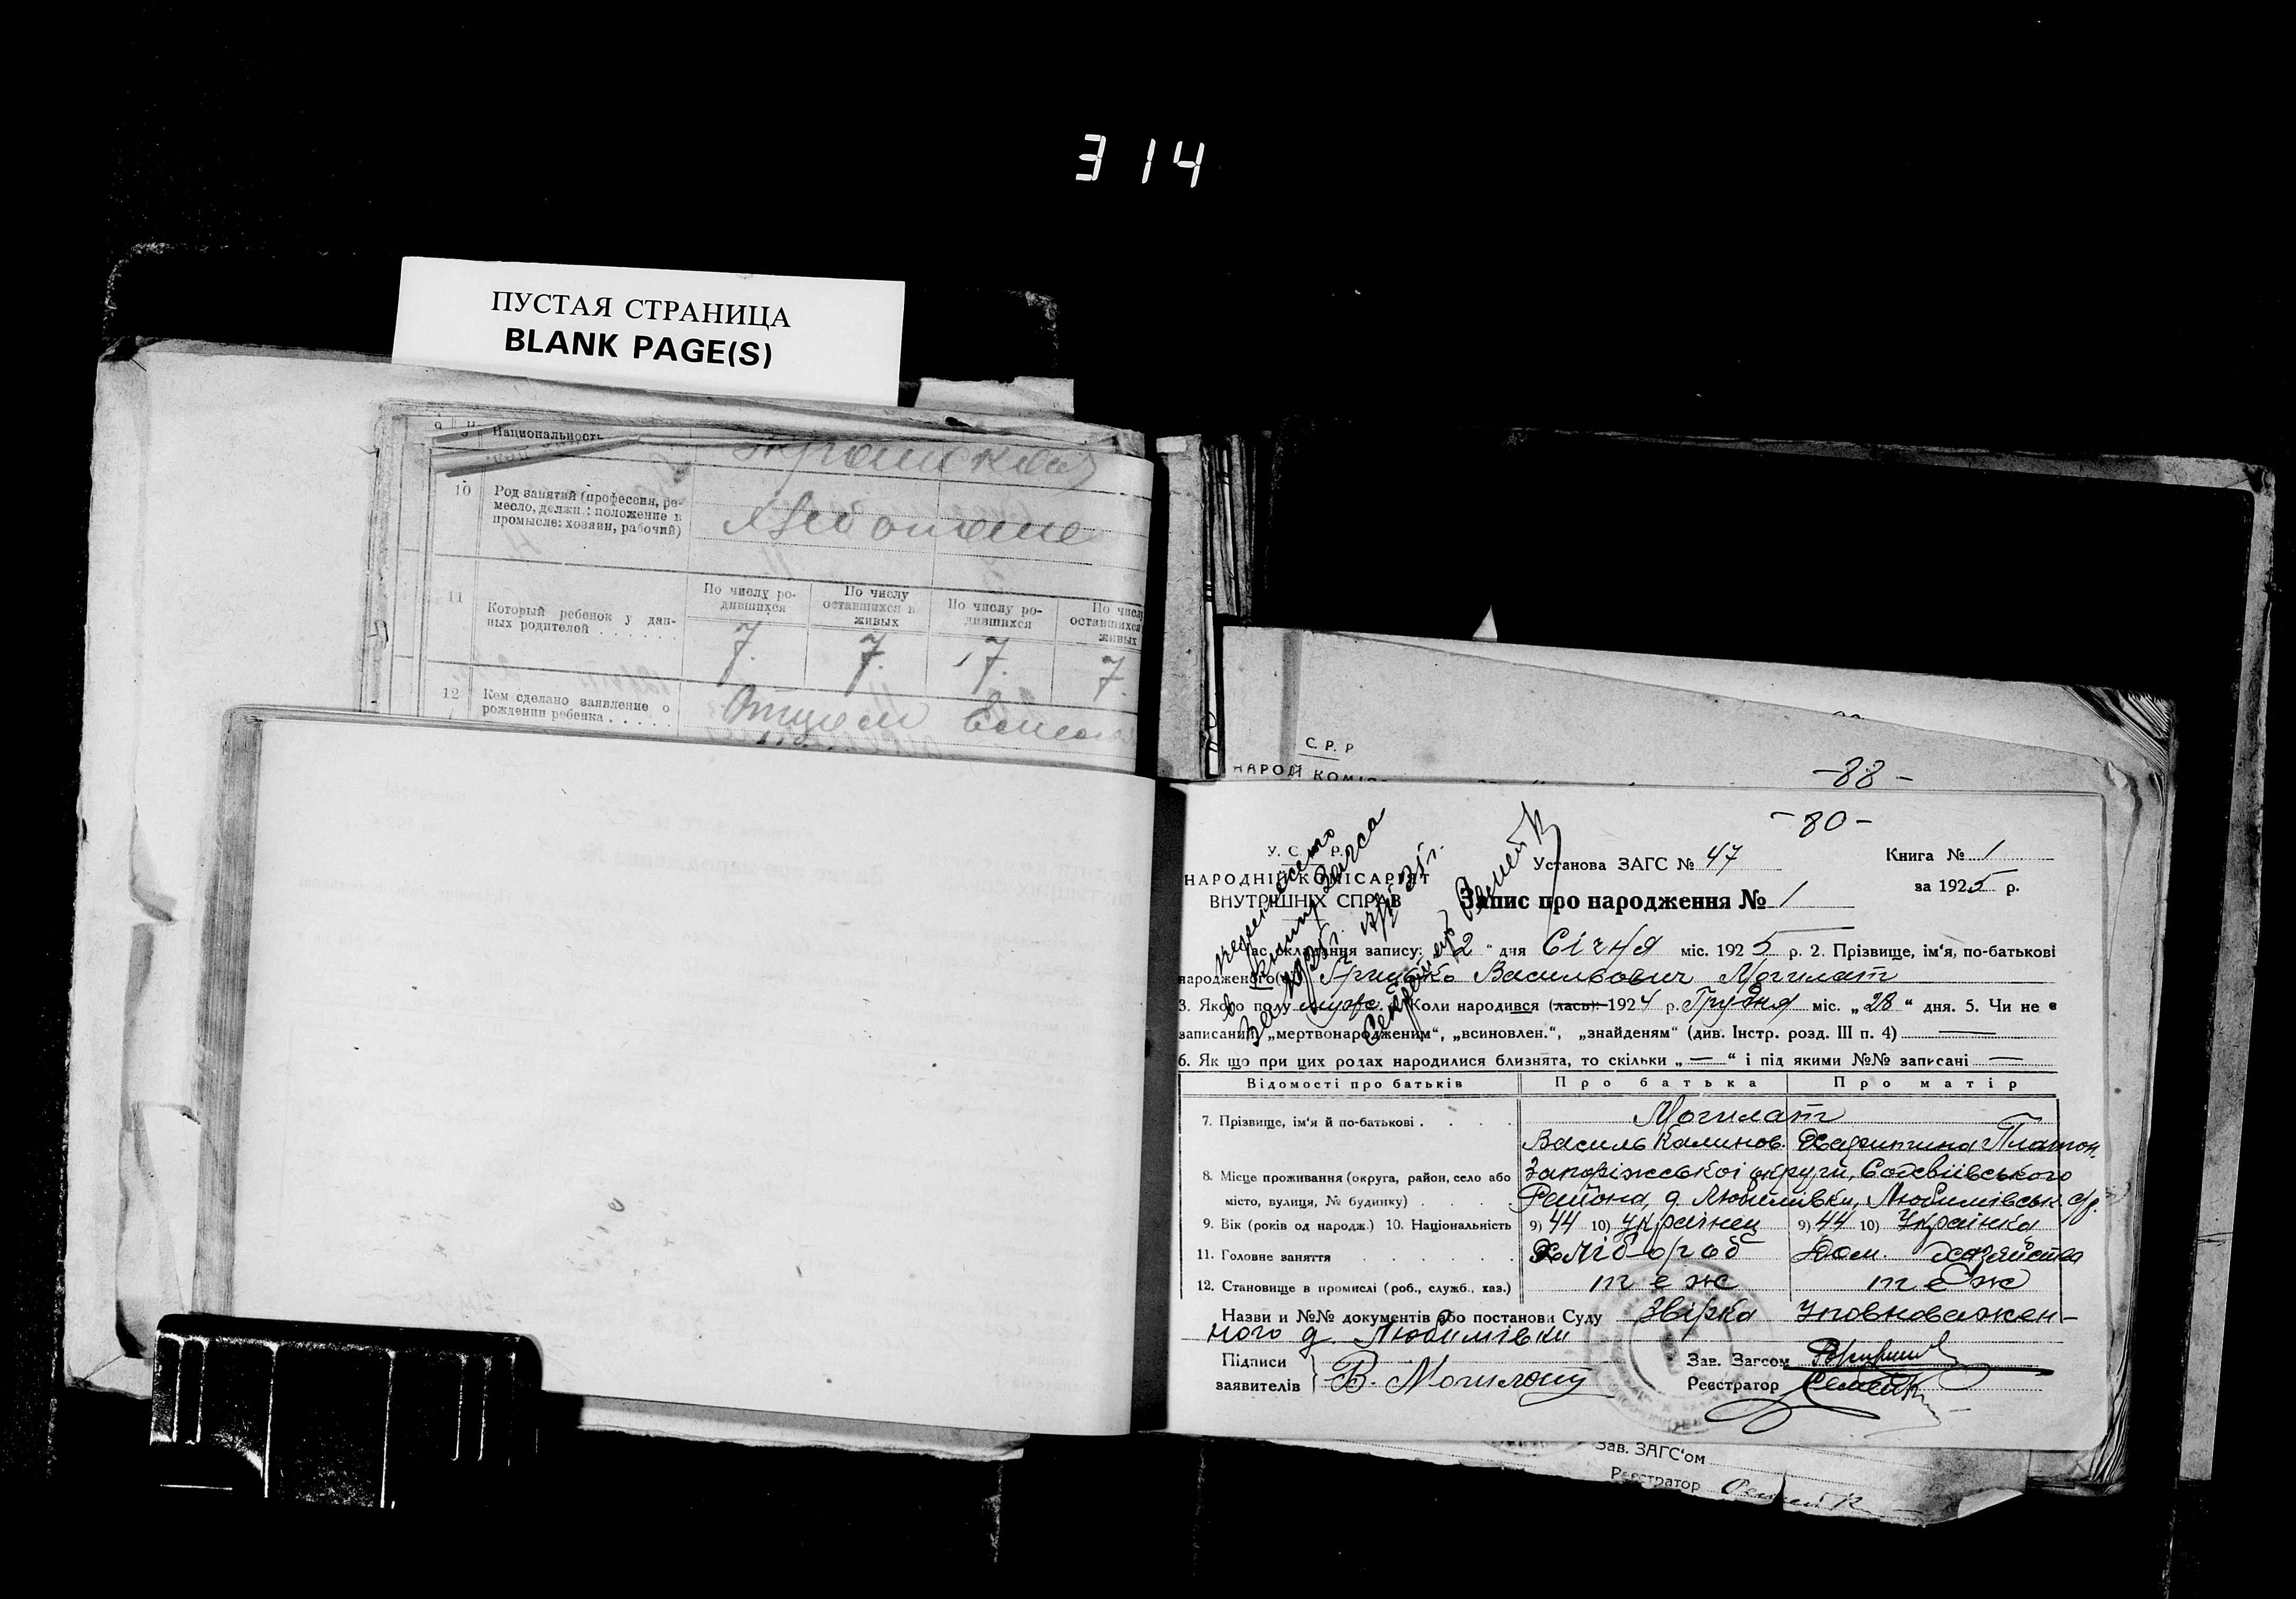 314
ПУСТАЯ СТРАНИЦА
BLANK PAGE(S)
9 Национальность
10 Род занятий (профессия, ре-
месло, должн.: положение в
промысле: хозяин, рабочий)
11 Который ребенок у дан-
ных родителей . . . . . . .
По числу ро-
дившихся
По числу
оставшихся в
живых
По числу ро-
дившихся
По числу
оставшихся
живых
7. 7. 7. 7.
12 Кем сделано заявление о
рождении ребенка . . . . .
Отцом
С. Р. Р
НАРОД КОМІ
-88-
-80-
У. С. Р. Р.
НАРОДНІЙ КОМІСАРІЯТ
ВНУТРІШНІХ СПРАВ
Установа ЗАГС № 47
Книга № 1
за 1925 р.
Запис про народження № 1
Час складання запису: „2“ дня Січня міс. 1925 р. 2. Прізвище, ім'я, по-батькові
народженого(ї) Грицько Васильович Могилат
3. Якого полу муж. 4. Коли народився (лась) 1924 р. Грудня міс. „28“ дня. 5. Чи не є
записаний „мертвонародженим“, „всиновлен.“, „знайденям“ (див. Інстр. розд. III п. 4)
6. Як що при цих родах народилися близнята, то скільки „—“ і під якими №№ записані —
Відомості про батьків Про батька Про матір
7. Прізвище, ім'я й по-батькові . . . . Могилат
Василь Калинов. Харитина Платон.
8. Місце проживання (округа, район, село або Запоріжської округи,
місто, вулиця, № будинку) . . . . Района, д. Любимівки, Любимівськ. с/р.
9. Вік (років од народж.) 10. Національність 9) 44 10) Українец 9) 44 10) Українка
11. Головне заняття . . . . . . Хлібороб Дом. хазяйство
12. Становище в промислі (роб., служб., хаз.) теж теж
Назви и №№ документів або постанови Суду Звірка Уповноважен-
ного д. Любимівки
Підписи
заявителів В. Могилат
Зав. Загсом
Реєстратор
Зав. ЗАГС'ом
Реєстратор